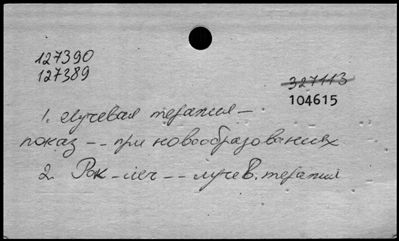 127390
127389
327113
104615
1. Лучевая терапия —
показ -- при новообразованиях
2. Рак - леч -- лучев. терапия